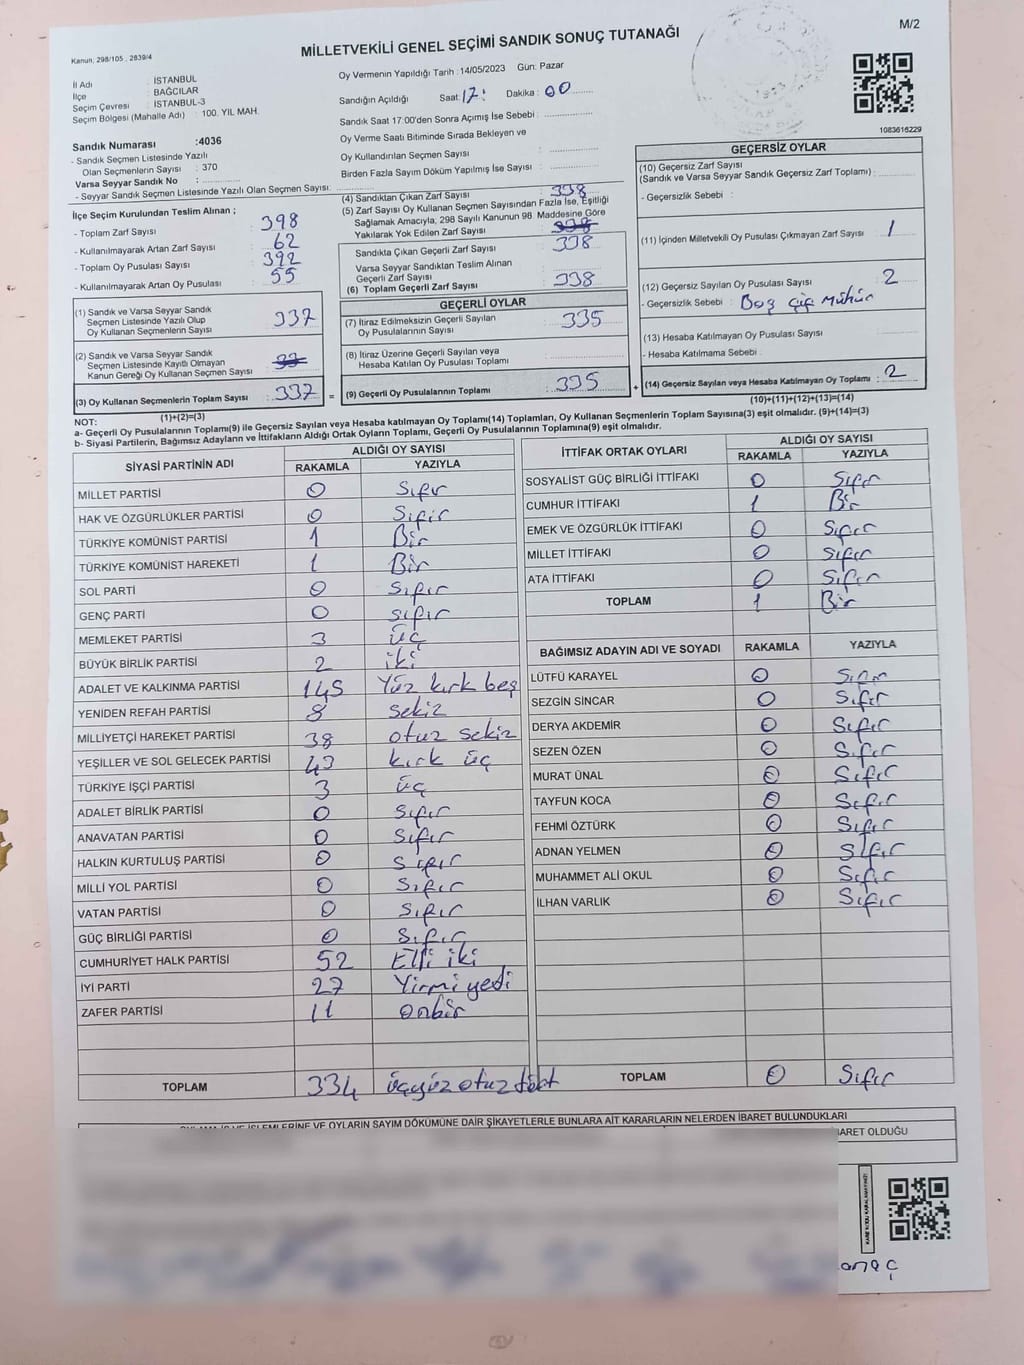 M/2
Kanun; 298/105 , 2839/4
MİLLETVEKİLİ GENEL SEÇİMİ SANDIK SONUÇ TUTANAĞI
İl Adı : İSTANBUL
İlçe : BAĞCILAR
Seçim Çevresi : İSTANBUL-3
Seçim Bölgesi (Mahalle Adı) : 100. YIL MAH.
Sandık Numarası :4036
- Sandık Seçmen Listesinde Yazılı
Olan Seçmenlerin Sayısı : 370
Varsa Seyyar Sandık No :
- Seyyar Sandık Seçmen Listesinde Yazılı Olan Seçmen Sayısı:
Oy Vermenin Yapıldığı Tarih :14/05/2023 Gün: Pazar
Sandığın Açıldığı Saat: 17: Dakika: 00
Sandık Saat 17:00'den Sonra Açımış İse Sebebi :
Oy Verme Saati Bitiminde Sırada Bekleyen ve
Oy Kullandırılan Seçmen Sayısı :
Birden Fazla Sayım Döküm Yapılmış İse Sayısı :
1083616229
İlçe Seçim Kurulundan Teslim Alınan ;
- Toplam Zarf Sayısı : 398
- Kullanılmayarak Artan Zarf Sayısı : 62
- Toplam Oy Pusulası Sayısı : 392
- Kullanılmayarak Artan Oy Pusulası : 55
(1) Sandık ve Varsa Seyyar Sandık
Seçmen Listesinde Yazılı Olup
Oy Kullanan Seçmenlerin Sayısı : 337
(2) Sandık ve Varsa Seyyar Sandık
Seçmen Listesinde Kayıtlı Olmayan
Kanun Gereği Oy Kullanan Seçmen Sayısı :
(3) Oy Kullanan Seçmenlerin Toplam Sayısı : 337
(1)+(2)=(3)
(4) Sandıktan Çıkan Zarf Sayısı : 338
(5) Zarf Sayısı Oy Kullanan Seçmen Sayısından Fazla İse, Eşitliği
Sağlamak Amacıyla, 298 Sayılı Kanunun 98 Maddesine Göre
Yakılarak Yok Edilen Zarf Sayısı : 338
Sandıkta Çıkan Geçerli Zarf Sayısı : 338
Varsa Seyyar Sandıktan Teslim Alınan
Geçerli Zarf Sayısı :
(6) Toplam Geçerli Zarf Sayısı : 338
GEÇERLİ OYLAR
(7) İtiraz Edilmeksizin Geçerli Sayılan
Oy Pusulalarının Sayısı : 335
(8) İtiraz Üzerine Geçerli Sayılan veya
Hesaba Katılan Oy Pusulası Toplamı :
= (9) Geçerli Oy Pusulalarının Toplamı : 335 +
GEÇERSİZ OYLAR
(10) Geçersiz Zarf Sayısı
(Sandık ve Varsa Seyyar Sandık Geçersiz Zarf Toplamı) :
- Geçersizlik Sebebi :
(11) İçinden Milletvekili Oy Pusulası Çıkmayan Zarf Sayısı : 1
(12) Geçersiz Sayılan Oy Pusulası Sayısı : 2
- Geçersizlik Sebebi : Boş çift mühür
(13) Hesaba Katılmayan Oy Pusulası Sayısı :
- Hesaba Katılmama Sebebi :
(14) Geçersiz Sayılan veya Hesaba Katılmayan Oy Toplamı : 2
(10)+(11)+(12)+(13)=(14)
NOT:
a- Geçerli Oy Pusulalarının Toplamı(9) ile Geçersiz Sayılan veya Hesaba katılmayan Oy Toplamı(14) Toplamları, Oy Kullanan Seçmenlerin Toplam Sayısına(3) eşit olmalıdır. (9)+(14)=(3)
b- Siyasi Partilerin, Bağımsız Adayların ve İttifakların Aldığı Ortak Oyların Toplamı, Geçerli Oy Pusulalarının Toplamına(9) eşit olmalıdır.
SİYASİ PARTİNİN ADI ALDIĞI OY SAYISI
RAKAMLA YAZIYLA
MİLLET PARTİSİ 0 Sıfır
HAK VE ÖZGÜRLÜKLER PARTİSİ 0 Sıfır
TÜRKİYE KOMÜNİST PARTİSİ 1 Bir
TÜRKİYE KOMÜNİST HAREKETİ 1 Bir
SOL PARTİ 0 Sıfır
GENÇ PARTİ 0 Sıfır
MEMLEKET PARTİSİ 3 üç
BÜYÜK BİRLİK PARTİSİ 2 iki
ADALET VE KALKINMA PARTİSİ 145 Yüz kırk beş
YENİDEN REFAH PARTİSİ 8 sekiz
MİLLİYETÇİ HAREKET PARTİSİ 38 otuz sekiz
YEŞİLLER VE SOL GELECEK PARTİSİ 43 kırk üç
TÜRKİYE İŞÇİ PARTİSİ 3 üç
ADALET BİRLİK PARTİSİ 0 Sıfır
ANAVATAN PARTİSİ 0 Sıfır
HALKIN KURTULUŞ PARTİSİ 0 Sıfır
MİLLİ YOL PARTİSİ 0 Sıfır
VATAN PARTİSİ 0 Sıfır
GÜÇ BİRLİĞİ PARTİSİ 0 Sıfır
CUMHURİYET HALK PARTİSİ 52 Elli iki
İYİ PARTİ 27 Yirmi yedi
ZAFER PARTİSİ 11 onbir
TOPLAM 334 üçyüz otuz dört
İTTİFAK ORTAK OYLARI ALDIĞI OY SAYISI
RAKAMLA YAZIYLA
SOSYALİST GÜÇ BİRLİĞİ İTTİFAKI 0 Sıfır
CUMHUR İTTİFAKI 1 Bir
EMEK VE ÖZGÜRLÜK İTTİFAKI 0 Sıfır
MİLLET İTTİFAKI 0 Sıfır
ATA İTTİFAKI 0 Sıfır
TOPLAM 1 Bir
BAĞIMSIZ ADAYIN ADI VE SOYADI RAKAMLA YAZIYLA
LÜTFÜ KARAYEL 0 Sıfır
SEZGİN SİNCAR 0 Sıfır
DERYA AKDEMİR 0 Sıfır
SEZEN ÖZEN 0 Sıfır
MURAT ÜNAL 0 Sıfır
TAYFUN KOCA 0 Sıfır
FEHMİ ÖZTÜRK 0 Sıfır
ADNAN YELMEN 0 Sıfır
MUHAMMET ALİ OKUL 0 Sıfır
İLHAN VARLIK 0 Sıfır
TOPLAM 0 Sıfır
İŞLEMLERİNE VE OYLARIN SAYIM DÖKÜMÜNE DAİR ŞİKAYETLERLE BUNLARA AİT KARARLARIN NELERDEN İBARET BULUNDUKLARI
OLDUĞU